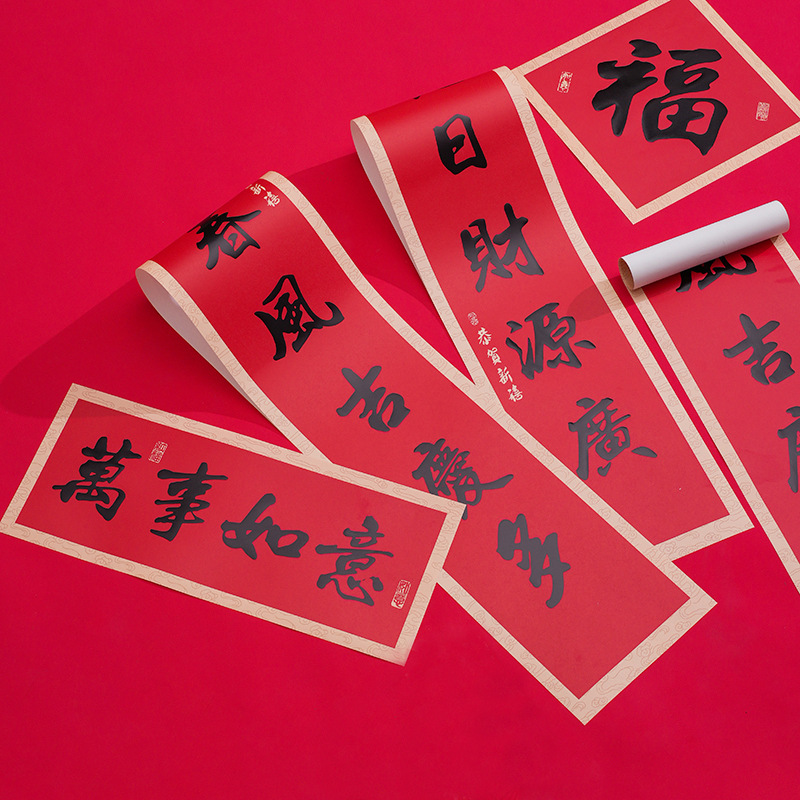 福
日財源廣
恭賀新禧
春風吉慶多
新禧
萬事如意
風吉